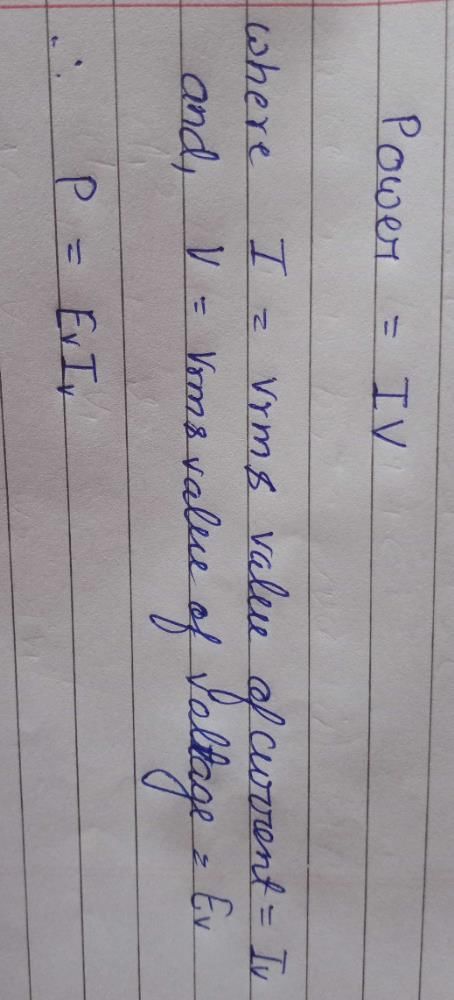 Power = IV
where I = vrms value of current = Iv
and, V = vrms value of voltage = Ev
∴ P = EvIv